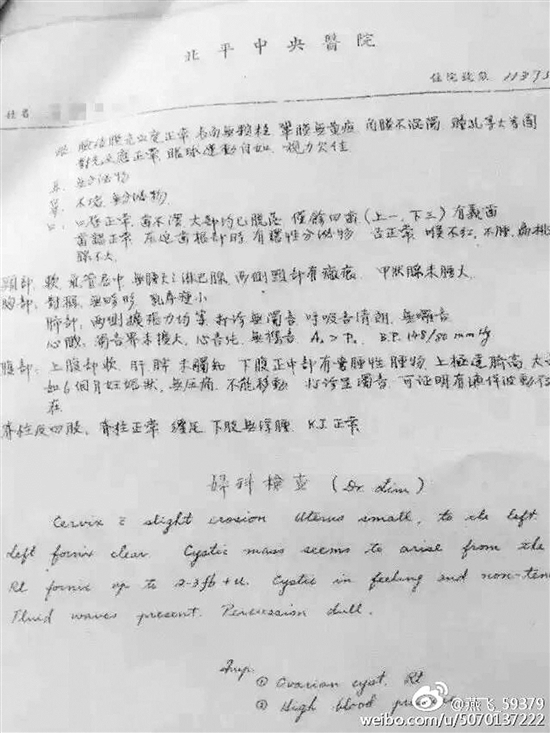 北平中央醫院
住院號數 11375
姓名
眼: 瞼結膜充血度正常 表面無顆粒 鞏膜無黃疸 角膜不混濁 瞳孔等大等圓
對光反應正常 眼球運動自如 視力欠佳
耳: 無分泌物
鼻: 不堵 無分泌物
口: 口唇正常 齒不潔 大部均已脫落 僅餘四齒 (上一、下三) 有義齒
齒齦正常 左邊齒根部時有膿性分泌物 舌正常 喉不紅 不腫 扁桃
腺不大
頸部: 軟 氣管居中 無腫大之淋巴腺 兩側頸部有瘢痕 甲狀腺未腫大
胸部: 對稱 無畸形 乳房瘦小
肺部: 兩側擴張力均等 打診無濁音 呼吸音清朗 無囉音
心臟: 濁音界未擴大 心音純 無雜音 A₂ > P₂ B.P. 148/80 mmHg
腹部: 上腹部軟 肝脾未觸知 下腹正中部有囊腫性腫物 上極達臍高 大
如6個月妊娠狀 無壓痛 不能移動 打診呈濁音 可証明有液体波動存
在
脊柱及四肢: 脊柱正常 纏足 下肢無浮腫 K.J. 正常
婦科檢查 (Dr. Lim)
Cervix c̄ slight erosion Uterus small, to the left
Left fornix clear. Cystic mass seems to arise from the
Rt fornix up to 2-3fb + u. Cystic in feeling and non-ten
Fluid waves present. Percussion dull.
Imp.
① Ovarian cyst. Rt
② High blood
@燕飞_59379
weibo.com/u/5070137222